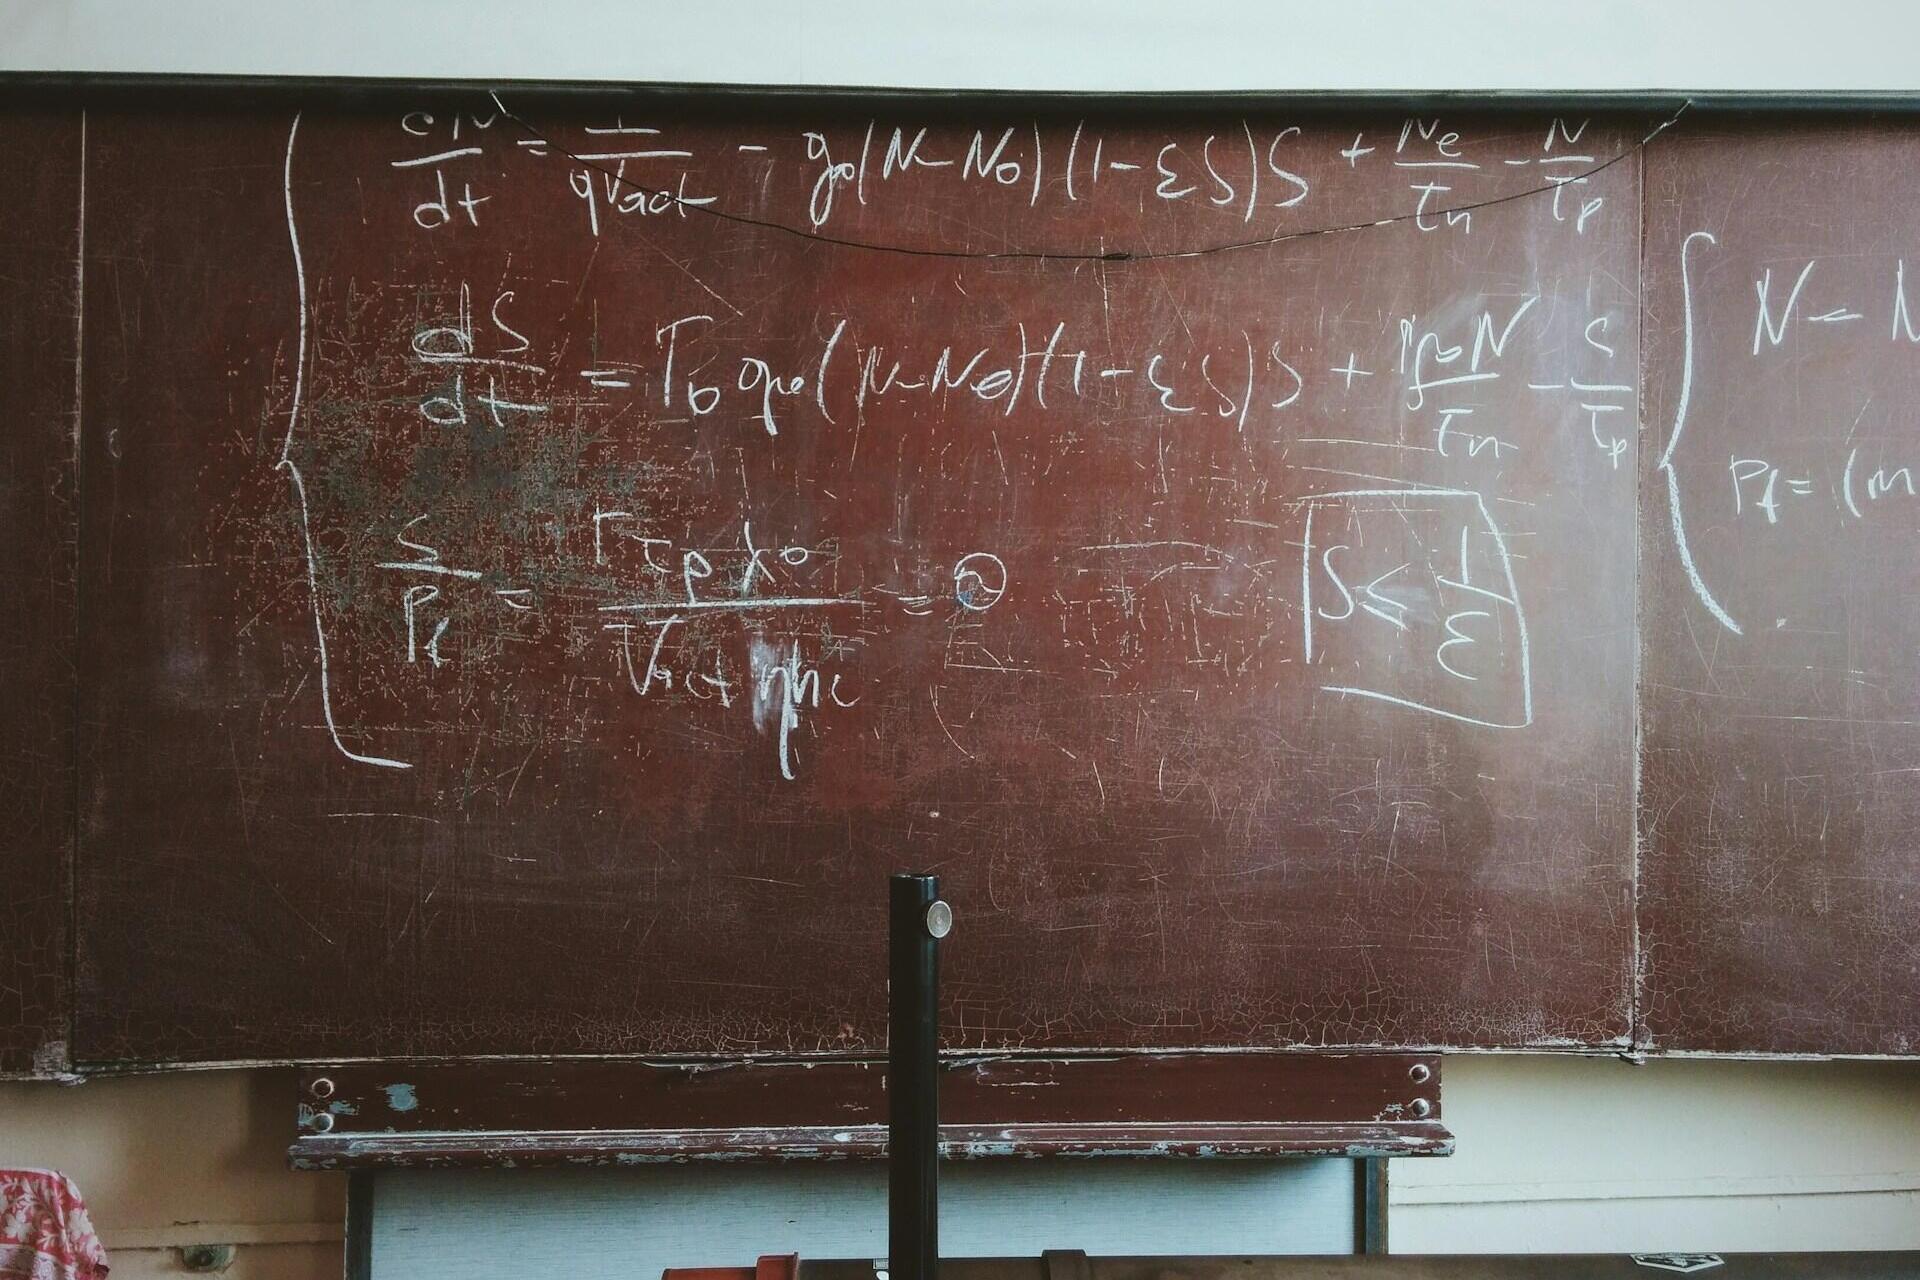 dN/dt = I/qVact - g0(N-N0)(1-εS)S + Ne/τn - N/τp
dS/dt = Γ0 g0(N-N0)(1-εS)S + ΓβN/τn - S/τp
S/Pf = Γτpλ0/Vact ηhc =
S ≤ 1/ε
N - N
Pf = (m